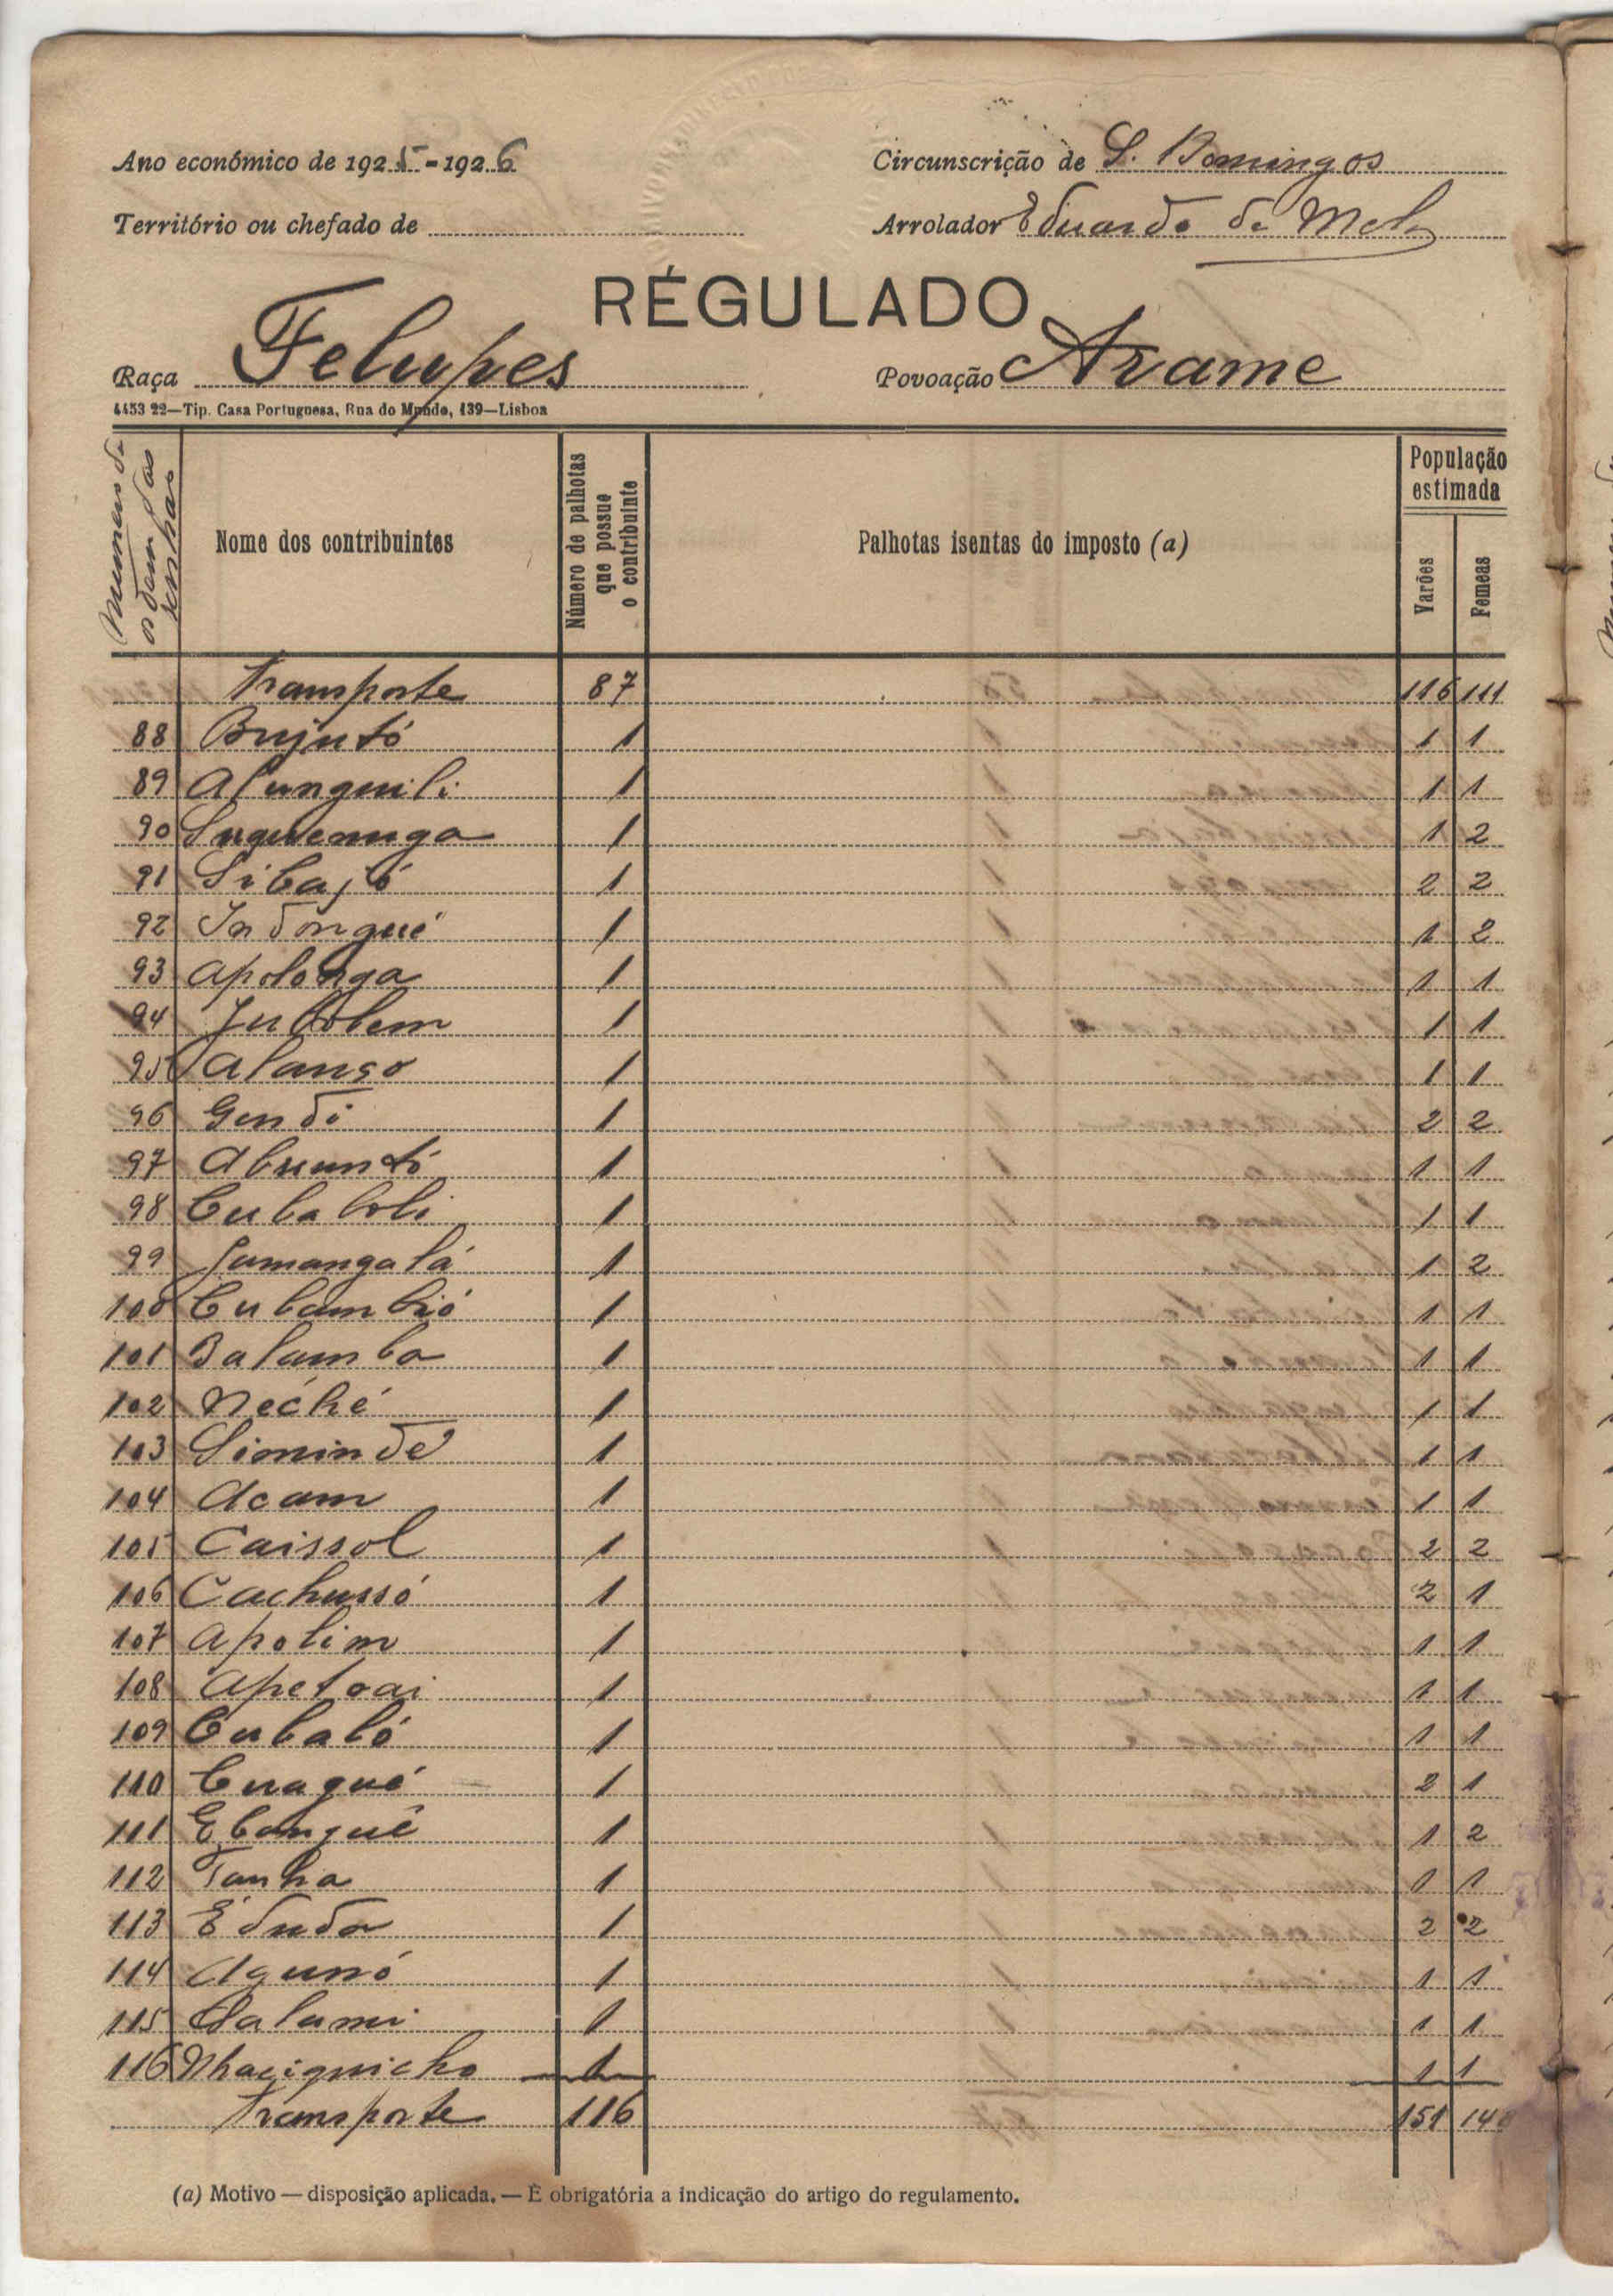 Ano económico de 1925-1926
Circunscrição de S. Domingos
Território ou chefado de
Arrolador Eduardo de Melo
RÉGULADO
Raça Felupes
Povoação Arame
4453 22—Tip. Casa Portuguesa, Rua do Mundo, 139—Lisboa
Numero de ordem das senhas
Nome dos contribuintes
Número de palhotas que possue o contribuinte
Palhotas isentas do imposto (a)
População estimada
Varões
Femeas
Transporte 87 116 111
88 Bujutó 1 1 1
89 Alunguili 1 1 1
90 1 1 2
91 Sibajó 1 2 2
92 Indongué 1 1 2
93 Apolonga 1 1 1
94 Jubolem 1 1 1
95 Alanso 1 1 1
96 Gendi 1 2 2
97 1 1 1
98 Cubaboli 1 1 1
99 Jamangalá 1 1 2
100 Cubambió 1 1 1
101 Balamba 1 1 1
102 Neché 1 1 1
103 Siminde 1 1 1
104 Acam 1 1 1
105 Caissol 1 2 2
106 Cachussó 1 2 1
107 Apolim 1 1 1
108 Apetoai 1 1 1
109 Cubaló 1 1 1
110 Cuagué 1 2 1
111 Ebonguê 1 1 2
112 Tanha 1 1 1
113 Eduda 1 2 2
114 Agunó 1 1 1
115 Salami 1 1 1
116 Nhaciquicho 1 1 1
Transporte 116 151 148
(a) Motivo — disposição aplicada. — É obrigatória a indicação do artigo do regulamento.